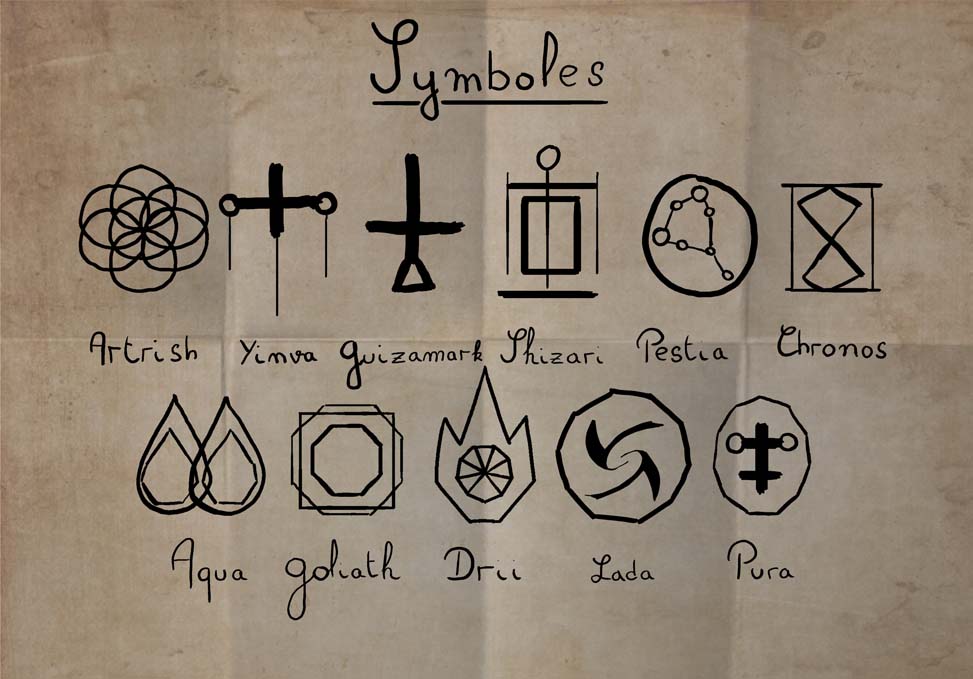 Symboles
Artrish Yinva Guizamark Shizari Pestia Chronos
Aqua Goliath Drii Lada Pura